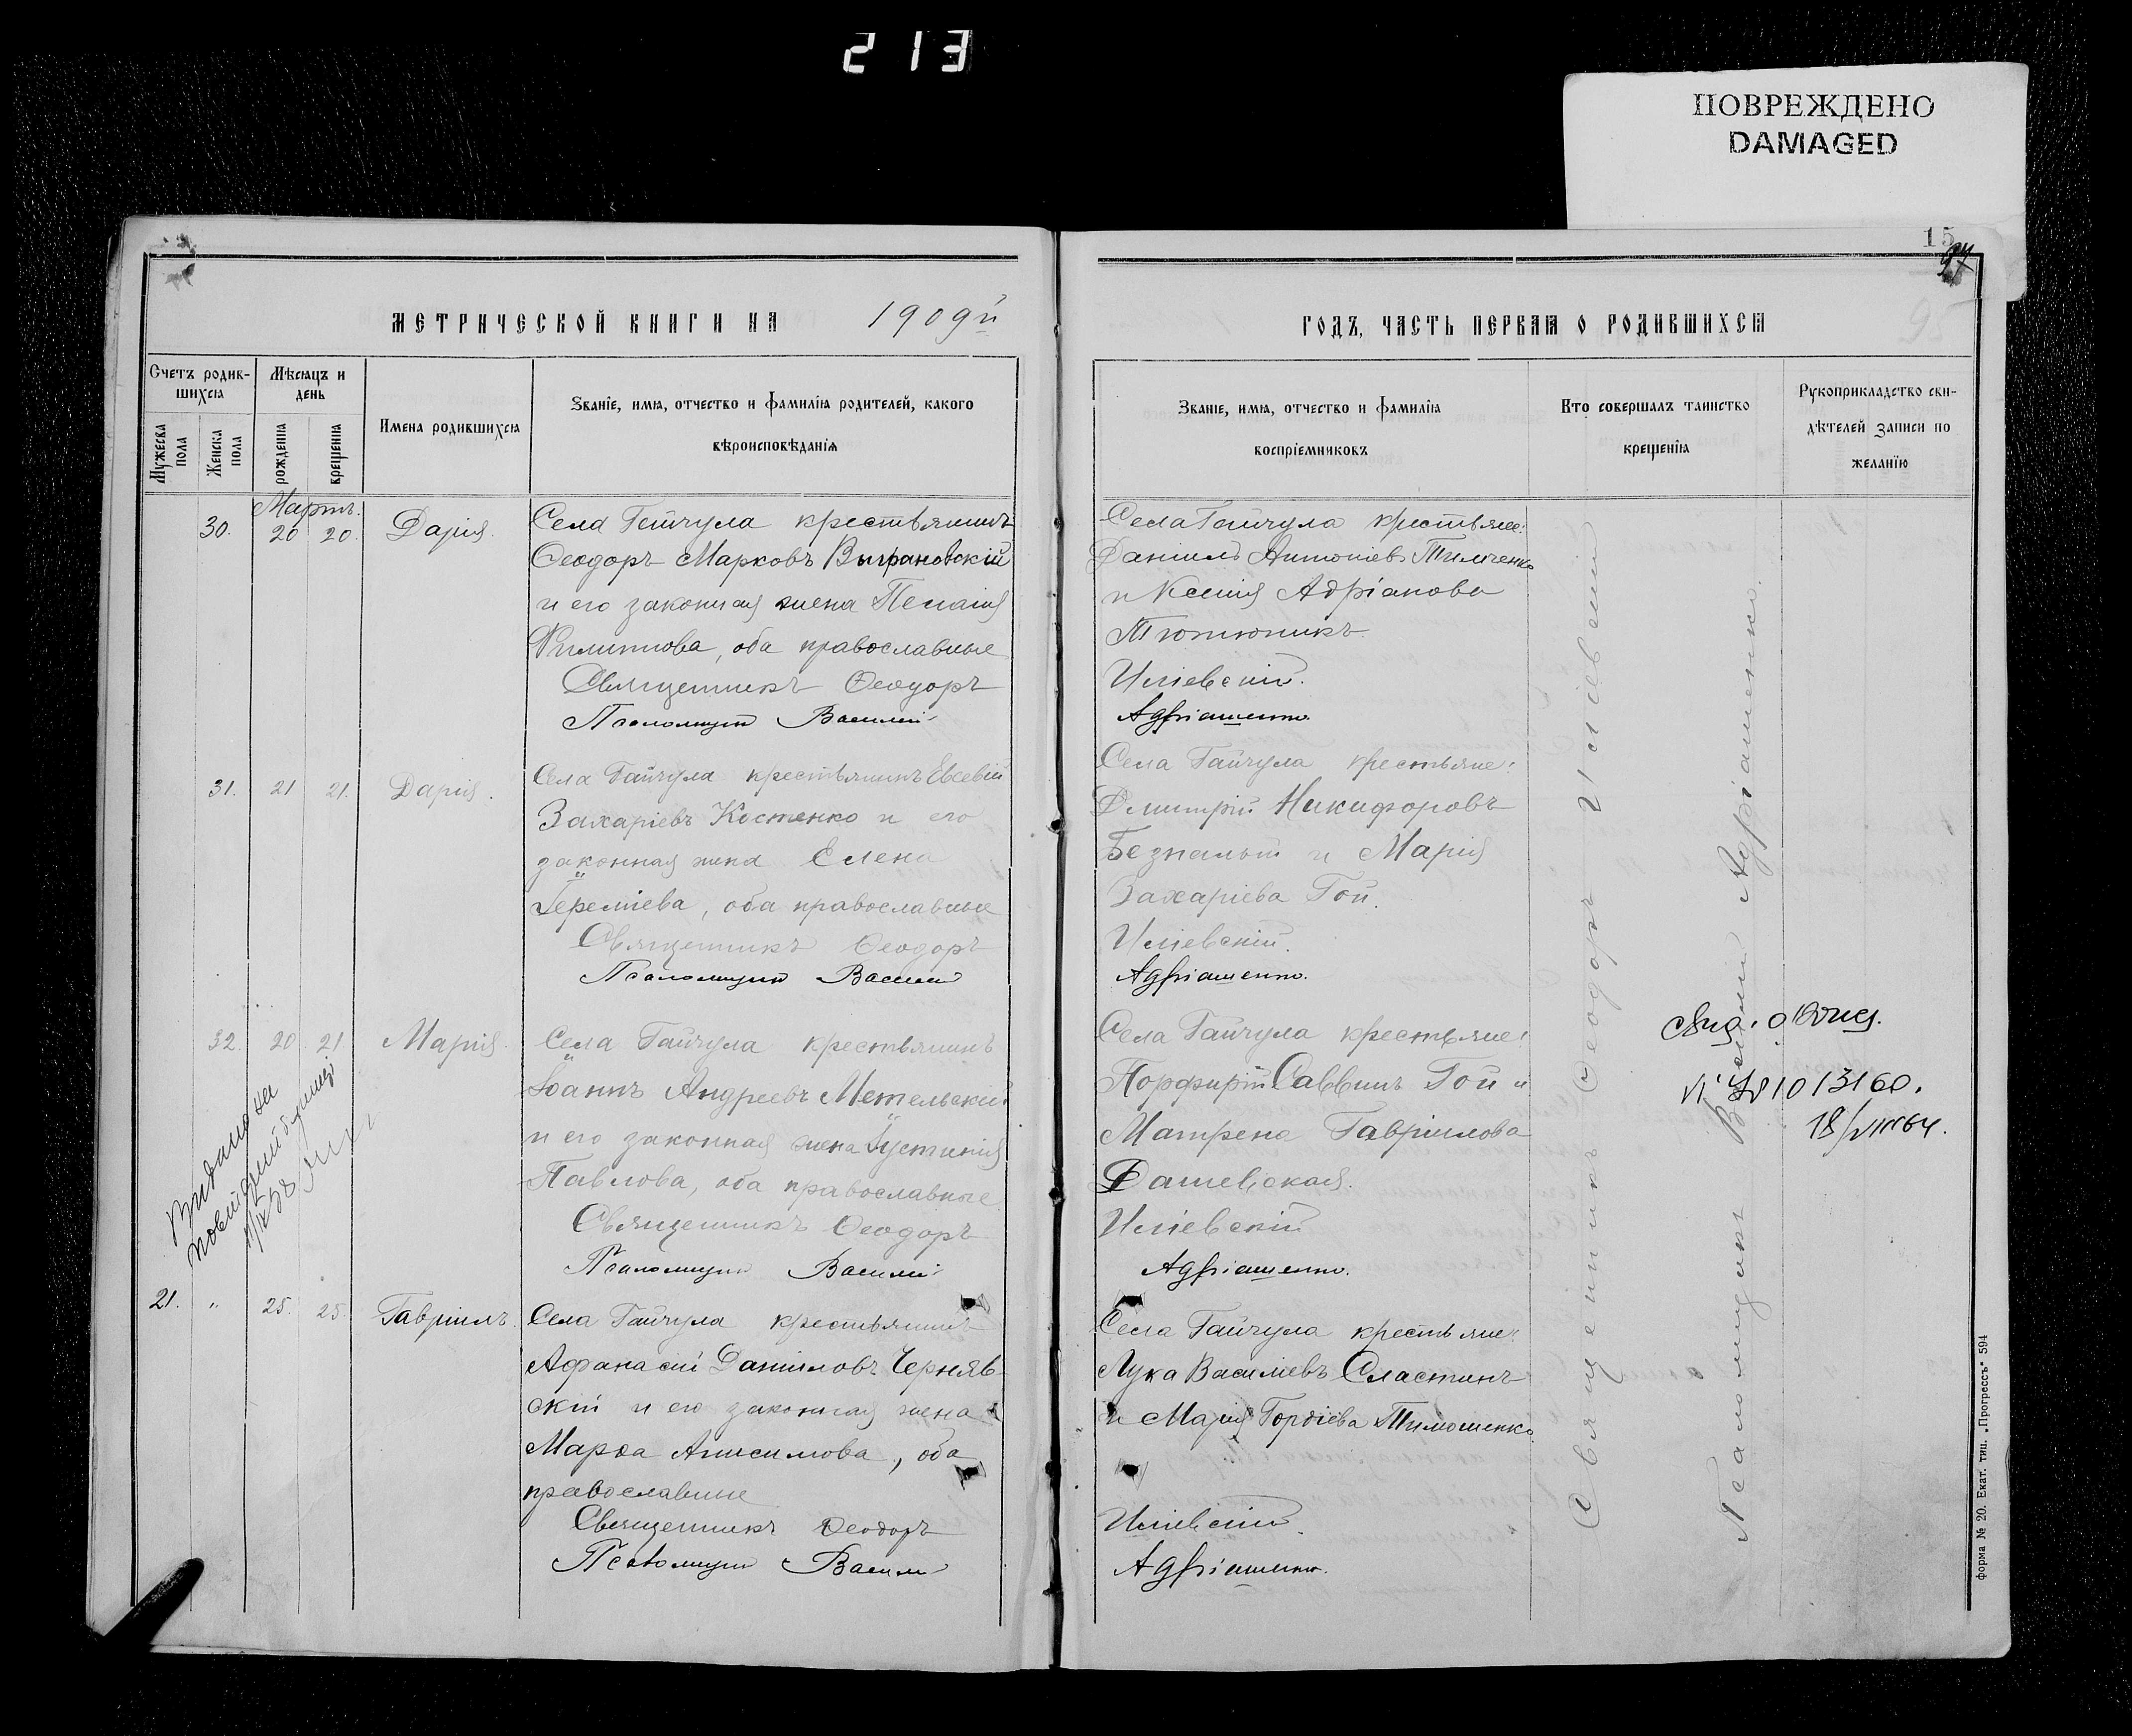 213
ПОВРЕЖДЕНО
DAMAGED
15
97
95
МЕТРИЧЕСКОЙ КНИГИ НА 1909й
ГОДЪ, ЧАСТЬ ПЕРВАЯ О РОДИВШИХСЯ
Счетъ родив-
шихся
Мѣсяцъ и
день
Мужеска
пола
Женска
пола
рожденія
крещенія
Имена родившихся
Званіе, имя, отчество и фамилія родителей, какого
вѣроисповѣданія
Званіе, имя, отчество и фамилія
воспріемниковъ
Кто совершалъ таинство
крещенія
Рукоприкладство сви-
дѣтелей записи по
желанію
Мартъ.
30. 20 20. Дарія.
Села Гайчула крестьянинъ
Ѳеодоръ Марковъ Выграновскій
и его законная жена Пелагія
Филиппова, оба православные
Священникъ Ѳеодоръ
Псаломщикъ Василій
Села Гайчула крестьяне:
Даніилъ Антоніевъ Тимченко
и Ксенія Адріанова
Тютюникъ.
Иліевскій.
Адріашенко.
31. 21 21. Дарія.
Села Гайчула крестьянинъ Евсевій
Захаріевъ Костенко и его
законная жена Елена
Іереміева, оба православные
Священникъ Ѳеодоръ
Псаломщикъ Василій
Села Гайчула крестьяне:
Димитрій Никифоровъ
Безпалый и Марія
Захаріева Гой.
Иліевскій.
Адріашенко.
32. 20 21 Марія.
Села Гайчула крестьянинъ
Іоаннъ Андреевъ Метельскій
и его законная жена Іустинія
Павлова, оба православные
Священникъ Ѳеодоръ
Псаломщикъ Василій
Села Гайчула крестьяне:
Порфирій Саввинъ Гой и
Матрена Гавріилова
Дашевская.
Иліевскій
Адріашенко.
21. " 25. 25. Гавріилъ.
Села Гайчула крестьянинъ
Аѳанасій Даніиловъ Черняв-
скій и его законная жена
Марѳа Анисимова, оба
православные
Священникъ Ѳеодоръ
Псаломщикъ Василій
Села Гайчула крестьяне:
Лука Василіевъ Сластинъ
и Марія Гордіева Тимошенко.
Иліевскій.
Адріашенко.
Священникъ Ѳеодоръ Иліевскій
Псаломщикъ Василій Адріашенко.
18/VIII 64.
форма № 20. Екат. тип. „Прогрессъ" 594